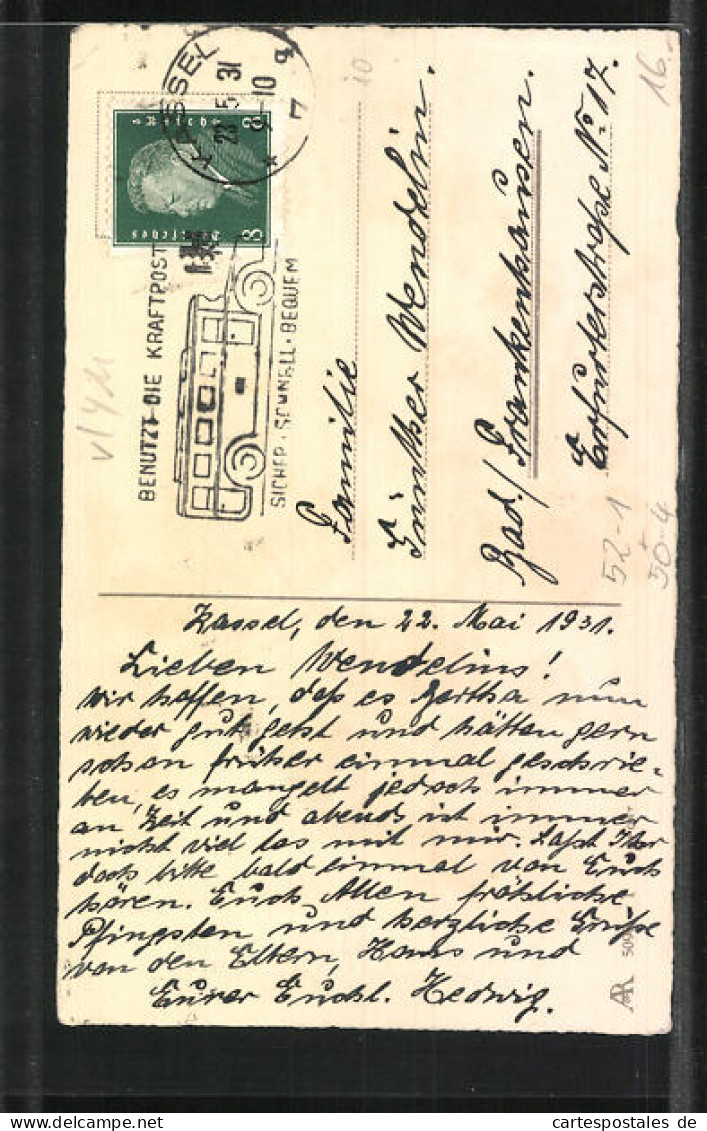 KASSEL
23.5.31
9-10
* 7 q
8 8
Deutsches
Reich
BENUTZT DIE KRAFTPOST
SICHER · SCHNELL · BEQUEM
Familie
Günther Wendelin.
Bad/Frankenhausen.
Erfurterstraße No 17.
16.-
10
52-1
50-4
Kassel, den 22. Mai 1931.
Lieben Wendelins!
Wir hoffen, daß es Bertha nun
wieder gut geht und hätten gern
schon früher einmal geschrie-
ben, es mangelt jedoch immer
an Zeit und abends ist immer
nicht viel los mit mir. Laßt Ihr
doch bitte bald einmal von Euch
hören. Euch Allen fröhliche
Pfingsten und herzliche Grüße
von den Eltern, Hans und
Eurer Hedwig.
AR
cartespostales de
cartespostales.de